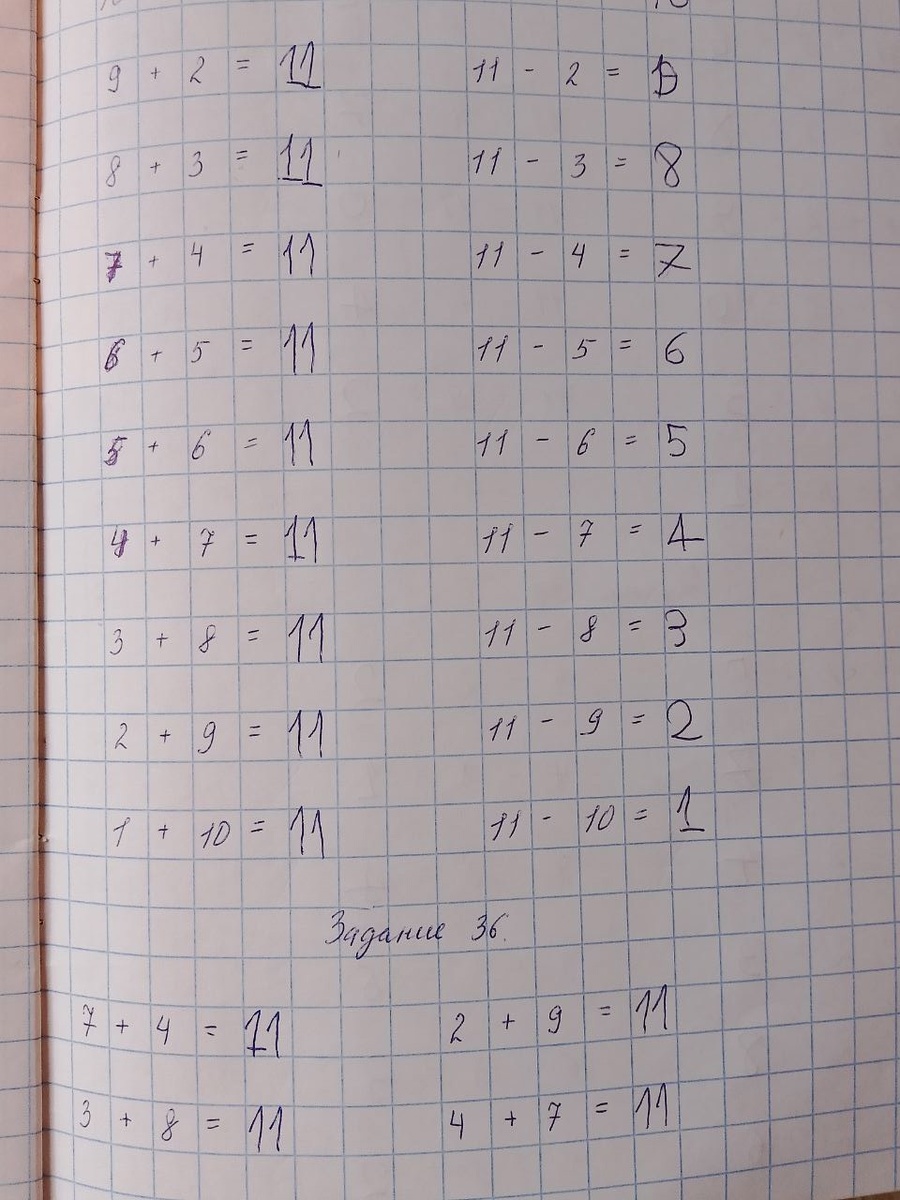 9 + 2 = 11 11 - 2 =
8 + 3 = 11 11 - 3 = 8
7 + 4 = 11 11 - 4 = 7
6 + 5 = 11 11 - 5 = 6
5 + 6 = 11 11 - 6 = 5
4 + 7 = 11 11 - 7 = 4
3 + 8 = 11 11 - 8 = 3
2 + 9 = 11 11 - 9 = 2
1 + 10 = 11 11 - 10 = 1
Задание 36.
7 + 4 = 11 2 + 9 = 11
3 + 8 = 11 4 + 7 = 11